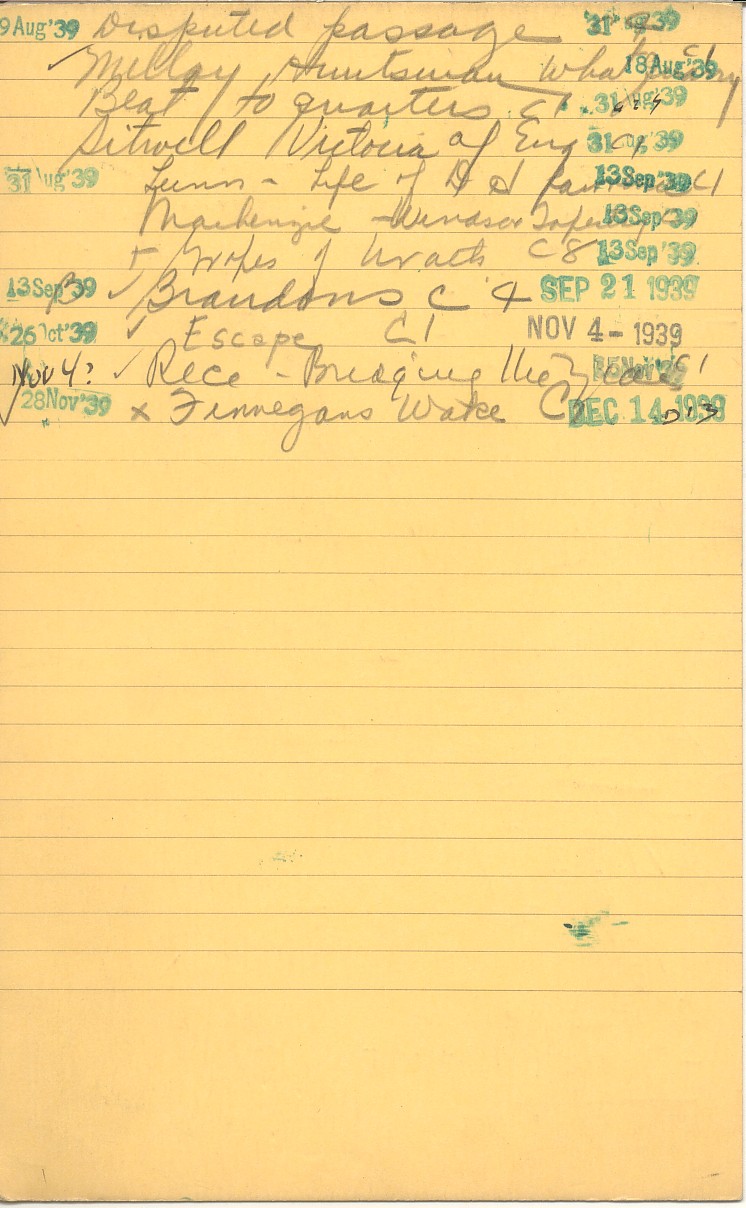 9 Aug '39 Disputed passage 31 ug 39
✓ Millay Huntsman What Quarry C1 18 Aug '39
Beat to quarters C1 31 ug '39
Sitwell Victoria of Eng C1 31 ug '39
31 ug '39 Lunn - Life of D H C1 13 Sep '39
Mackenzie - Windsor Tapestry 13 Sep '39
+ Grapes of Wrath C8 13 Sep '39
13 Sep '39 ✓ Brandons C 4 SEP 21 1939
26 Oct '39 ✓ Escape C1 NOV 4 - 1939
Nov 4? ✓ Rece - Bridging the years C1
28 Nov '39 x Finnegans Wake C DEC 14 1939